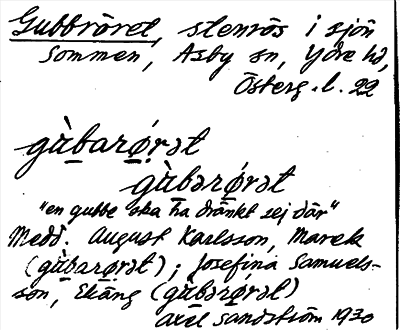 Gubbröret, stenrös i sjön
Sommen, Asby sn, Ydre hd,
Österg. l. 22
gù̲barǿ̲rət
gù̲bərǿ̲rət
"en gubbe ska ha dränkt sej där"
Medd. August Karlsson, Marek
(gù̲barǿ̲rət); Josefina Samuels-
son, Ekäng (gù̲bərǿ̲rət)
Axel Sandström 1930